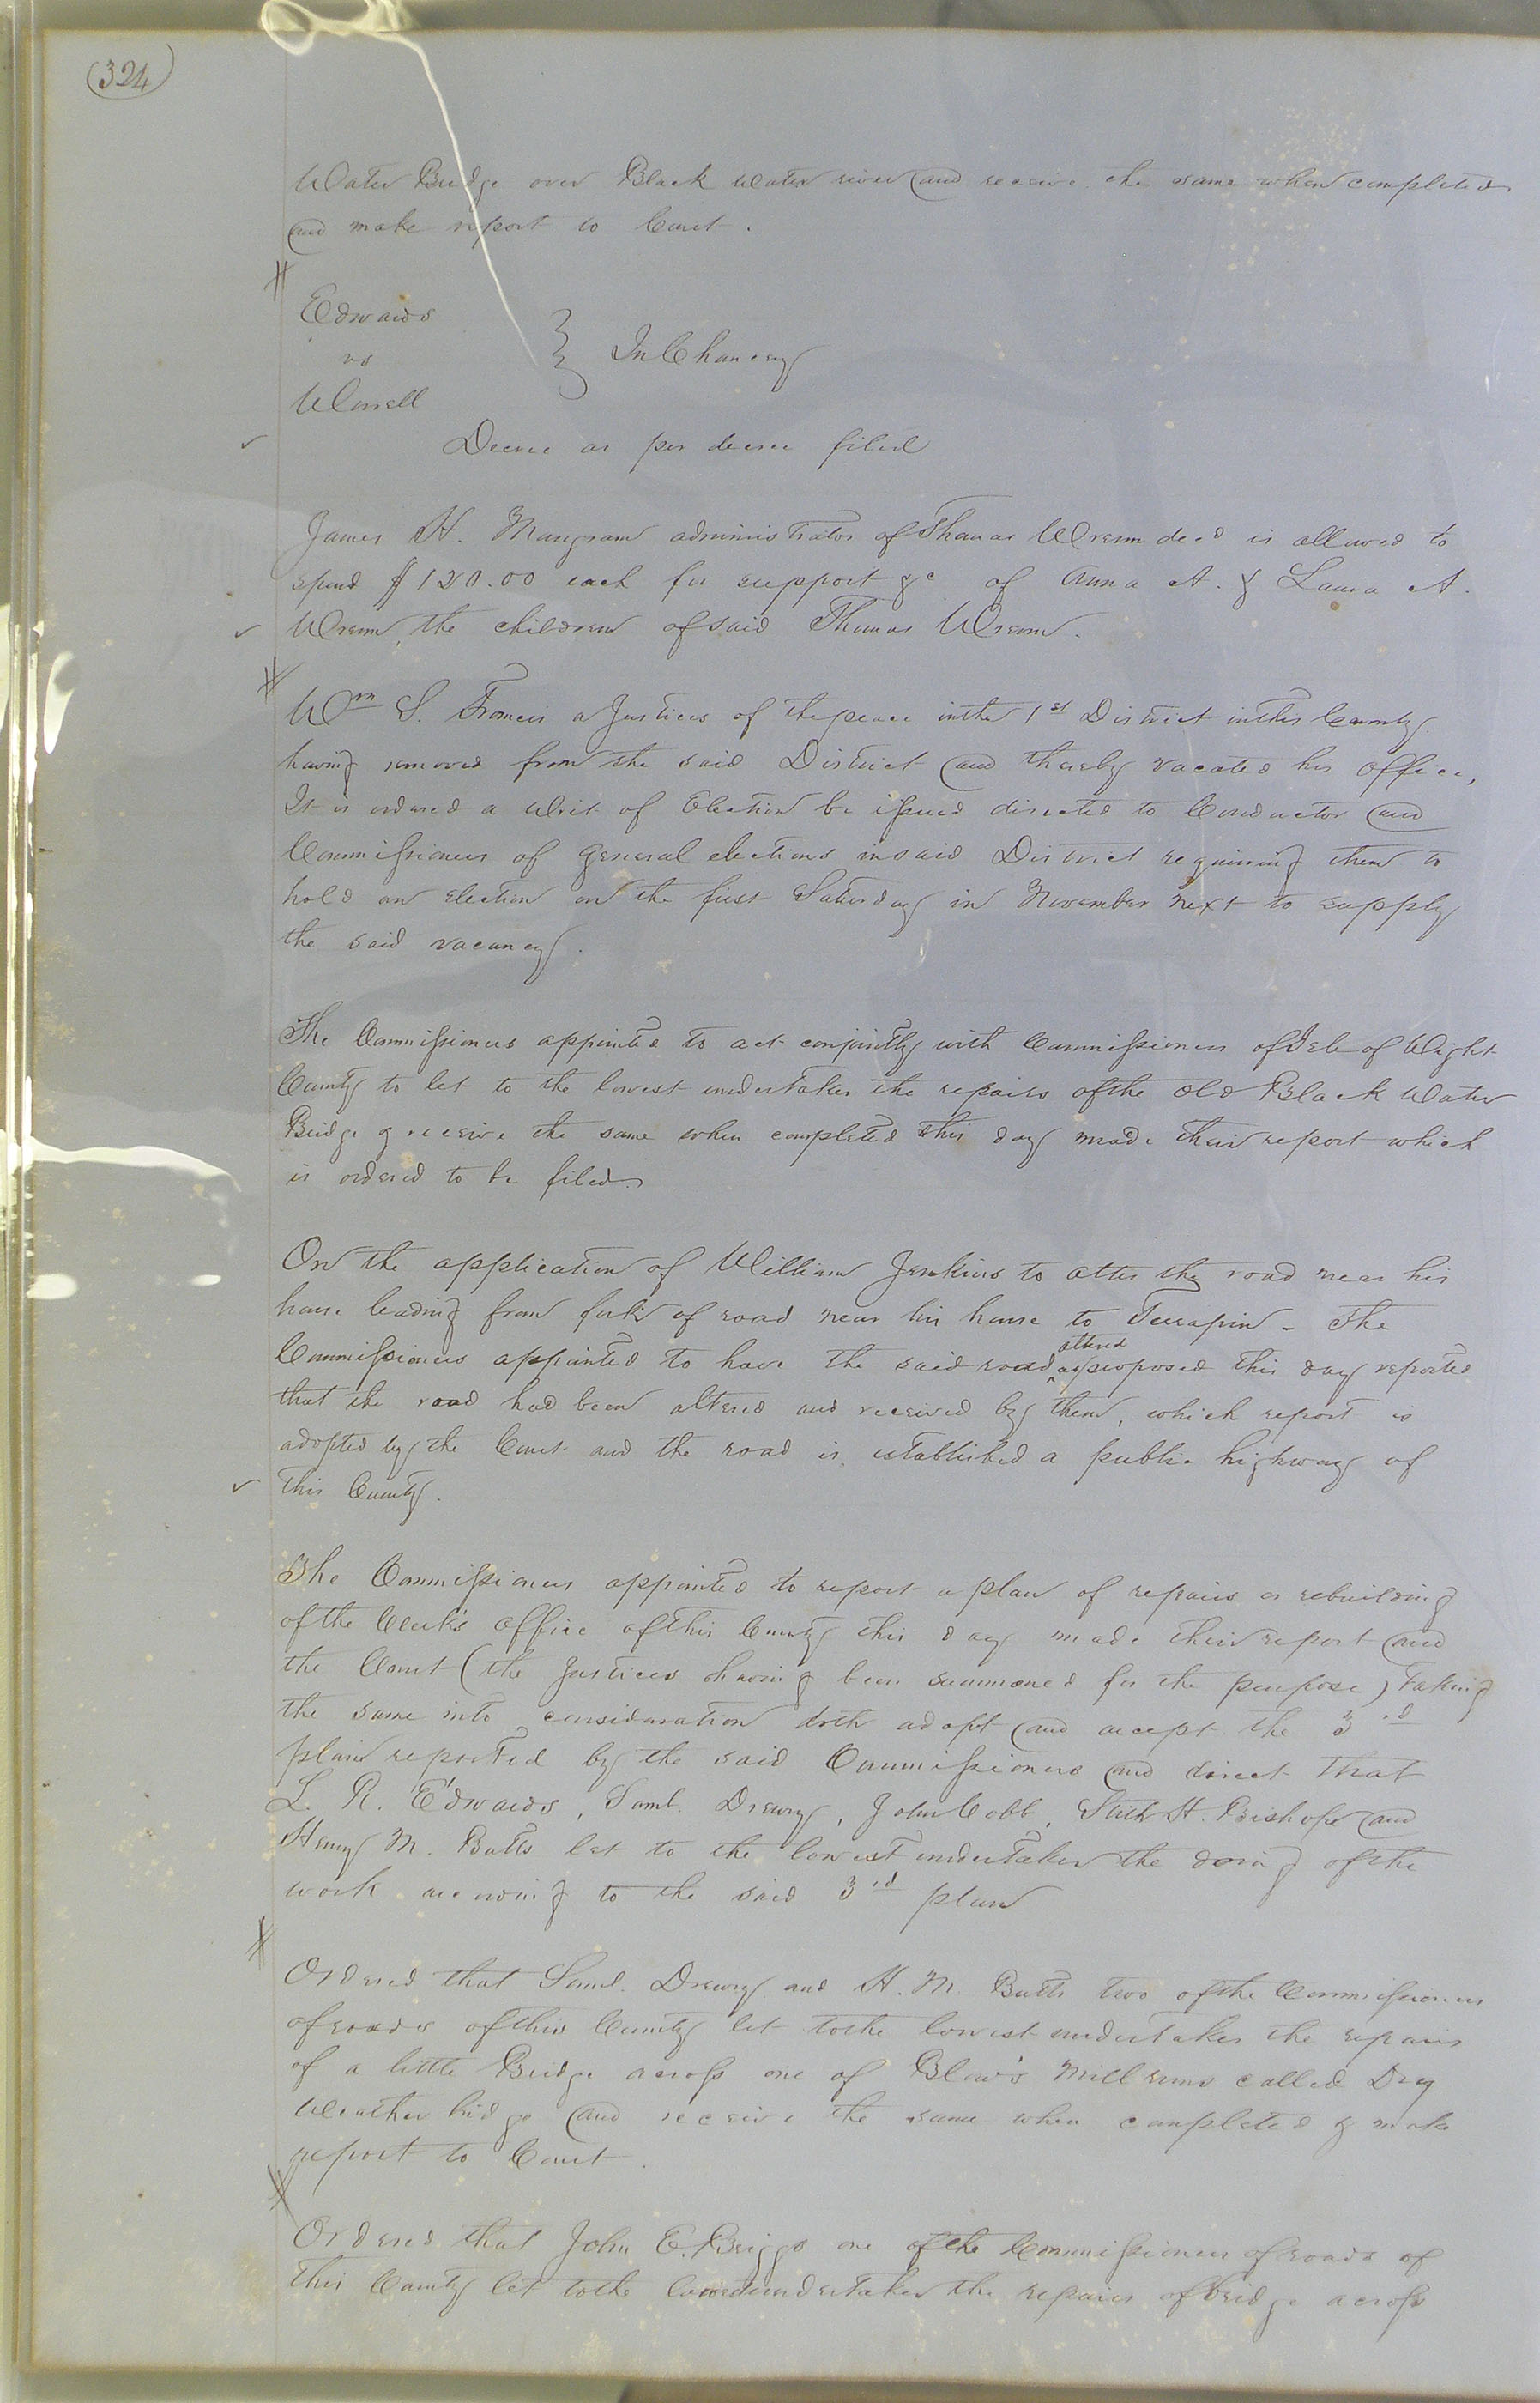 (324)
Water Bridge over Black Water river and receive the same when completed
and make report to Court.
Edwards
vs } In Chancery
Worrell
Decree as per decree filed
James H. Mangram administrator of Thomas Wrenn decd is allowed to
spend $120.00 each for support &c of Anna A. & Laura A.
Wrenn, the children of said Thomas Wrenn.
Wm S. Francis a Justices of the peace in the 1st District in this County
having removed from the said District and thereby vacated his office,
It is ordered a Writ of Election be issued directed to Conductor and
Commissioners of General elections in said District requiring them to
hold an election on the first Saturday in November next to supply
the said vacancy.
The Commissioners appointed to act conjointly with Commissioners of Isle of Wight
County to let to the lowest undertaker the repairs of the Old Black Water
Bridge & receive the same when completed this day made their report which
is ordered to be filed.
On the application of William Jenkins to alter the road near his
house leading from fork of road near his house to Terrapin - The
Commissioners appointed to have the said road altered as proposed this day reported
that the road had been altered and received by them, which report is
adopted by the Court and the road is established a public highway of
this County.
The Commissioners appointed to report a plan of repairs or rebuilding
of the Clerk's Office of this County this day made their report and
the Court (the Justices having been summoned for the purpose) taking
the same into consideration doth adopt and accept the 3rd
plan reported by the said Commissioners and direct that
L. R. Edwards, Saml. Drewry, John Cobb, Stith H. Bishop and
Henry M. Butts let to the lowest undertaker the doing of the
work according to the said 3rd plan
Ordered that Saml. Drewry and H. M. Butts two of the Commissioners
of roads of this County let to the lowest undertaker the repairs
of a little Bridge across one of Blow's Mill runs called Dry
Weather bridge and receive the same when completed & make
report to Court.
Ordered that John E. Briggs one of the Commissioners of roads of
this County let to the lowest undertaker the repairs of bridge across